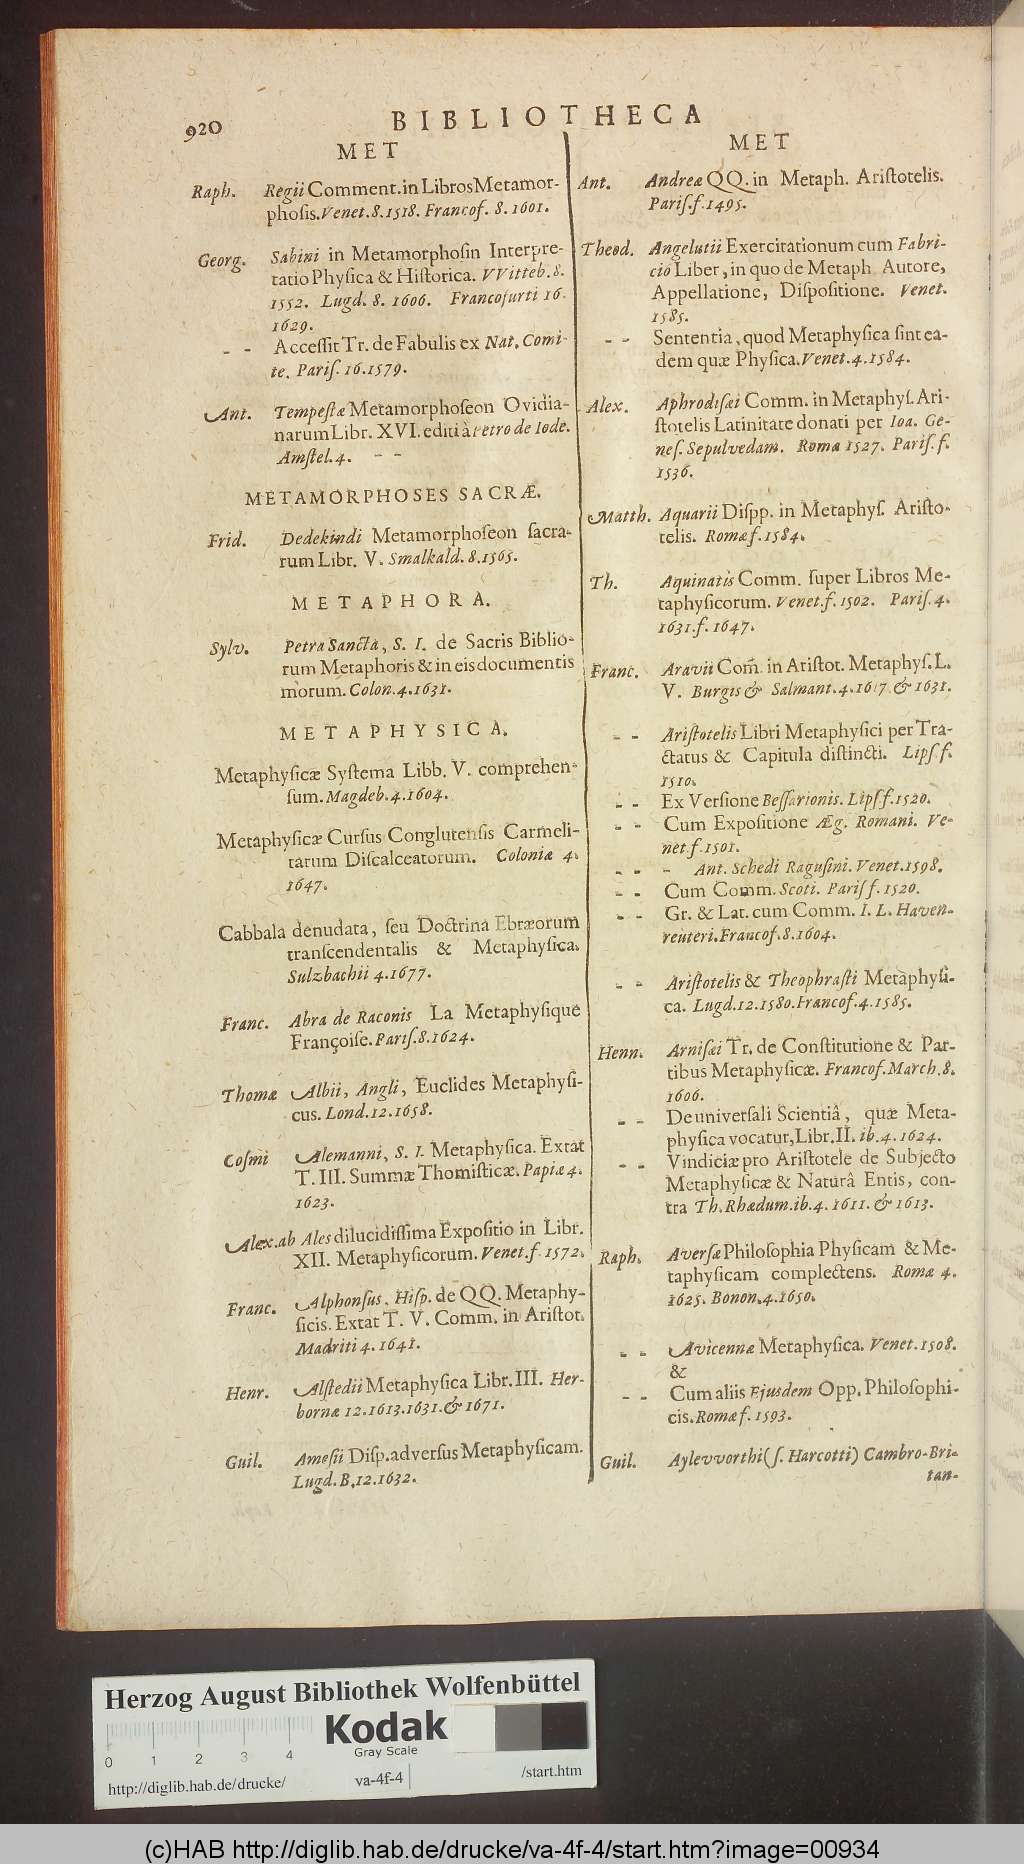 920
BIBLIOTHECA
MET
Raph. Regii Comment. in Libros Metamor-
phosis. Venet. 8. 1518. Francof. 8. 1601.
Georg. Sabini in Metamorphosin Interpre-
tatio Physica & Historica. VVitteb. 8.
1552. Lugd. 8. 1606. Francofurti 16.
1629.
- - Accessit Tr. de Fabulis ex Nat. Comi-
te. Paris. 16. 1579.
Ant. Tempestæ Metamorphoseon Ovidia-
narum Libr. XVI. editi à Petro de Iode.
Amstel. 4. - -
METAMORPHOSES SACRÆ.
Frid. Dedekindi Metamorphoseon sacra-
rum Libr. V. Smalkald. 8. 1565.
METAPHORA.
Sylv. Petra Sancta, S. I. de Sacris Biblio-
rum Metaphoris & in eis documentis
morum. Colon. 4. 1631.
METAPHYSICA.
Metaphysicæ Systema Libb. V. comprehen-
sum. Magdeb. 4. 1604.
Metaphysicæ Cursus Conglutensis Carmeli-
tarum Discalceatorum. Coloniæ 4.
1647.
Cabbala denudata, seu Doctrina Ebræorum
transcendentalis & Metaphysica.
Sulzbachii 4. 1677.
Franc. Abra de Raconis La Metaphysique
Françoise. Paris. 8. 1624.
Thomæ Albii, Angli, Euclides Metaphysi-
cus. Lond. 12. 1658.
Cosmi Alemanni, S. I. Metaphysica. Extat
T. III. Summæ Thomisticæ. Papiæ 4.
1623.
Alex. ab Ales dilucidissima Expositio in Libr.
XII. Metaphysicorum. Venet. f. 1572.
Franc. Alphonsus, Hisp. de QQ. Metaphy-
sicis. Extat T. V. Comm. in Aristot.
Madriti 4. 1641.
Henr. Alstedii Metaphysica Libr. III. Her-
bornæ 12. 1613. 1631. & 1671.
Guil. Amesii Disp. adversus Metaphysicam.
Lugd. B. 12. 1632.
MET
Ant. Andreæ QQ. in Metaph. Aristotelis.
Paris. f. 1495.
Theod. Angelutii Exercitationum cum Fabri-
cio Liber, in quo de Metaph. Autore,
Appellatione, Dispositione. Venet.
1585.
- - Sententia, quod Metaphysica sint ea-
dem quæ Physica. Venet. 4. 1584.
Alex. Aphrodisæi Comm. in Metaphys. Ari-
stotelis Latinitate donati per Ioa. Ge-
nes. Sepulvedam. Romæ 1527. Paris. f.
1536.
Matth. Aquarii Dispp. in Metaphys. Aristo-
telis. Romæ f. 1584.
Th. Aquinatis Comm. super Libros Me-
taphysicorum. Venet. f. 1502. Paris. 4.
1631. f. 1647.
Franc. Aravii Com̃. in Aristot. Metaphys. L.
V. Burgis & Salmant. 4. 1617. & 1631.
- - Aristotelis Libri Metaphysici per Tra-
ctatus & Capitula distincti. Lips. f.
1510.
- - Ex Versione Bessarionis. Lips. f. 1520.
- - Cum Expositione Æg. Romani. Ve-
net. f. 1501.
- - - Ant. Schedi Ragusini. Venet. 1598.
- - Cum Comm. Scoti. Paris. f. 1520.
- - Gr. & Lat. cum Comm. I. L. Haven-
reuteri. Francof. 8. 1604.
- - Aristotelis & Theophrasti Metaphysi-
ca. Lugd. 12. 1580. Francof. 4. 1585.
Henn. Arnisæi Tr. de Constitutione & Par-
tibus Metaphysicæ. Francof. March. 8.
1606.
- - De universali Scientiâ, quæ Meta-
physica vocatur, Libr. II. ib. 4. 1624.
- - Vindiciæ pro Aristotele de Subjecto
Metaphysicæ & Naturâ Entis, con-
tra Th. Rhædum. ib. 4. 1611. & 1613.
Raph. Aversæ Philosophia Physicam & Me-
taphysicam complectens. Romæ 4.
1625. Bonon. 4. 1650.
- - Avicennæ Metaphysica. Venet. 1508.
&
- - Cum aliis Ejusdem Opp. Philosophi-
cis. Romæ f. 1593.
Guil. Aylevvorthi (s. Harcotti) Cambro-Bri-
tan-
Herzog August Bibliothek Wolfenbüttel
Kodak
Gray Scale
0 1 2 3 4
http://diglib.hab.de/drucke/ va-4f-4 /start.htm
(c)HAB http://diglib.hab.de/drucke/va-4f-4/start.htm?image=00934